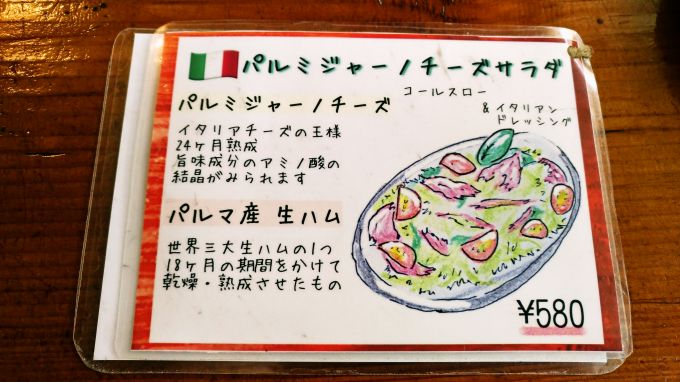 パルミジャーノチーズサラダ
コールスロー
&イタリアン
ドレッシング
パルミジャーノチーズ
イタリアチーズの王様
24ヶ月熟成
旨味成分のアミノ酸の
結晶がみられます
パルマ産 生ハム
世界三大生ハムの1つ
18ヶ月の期間をかけて
乾燥・熟成させたもの
¥580